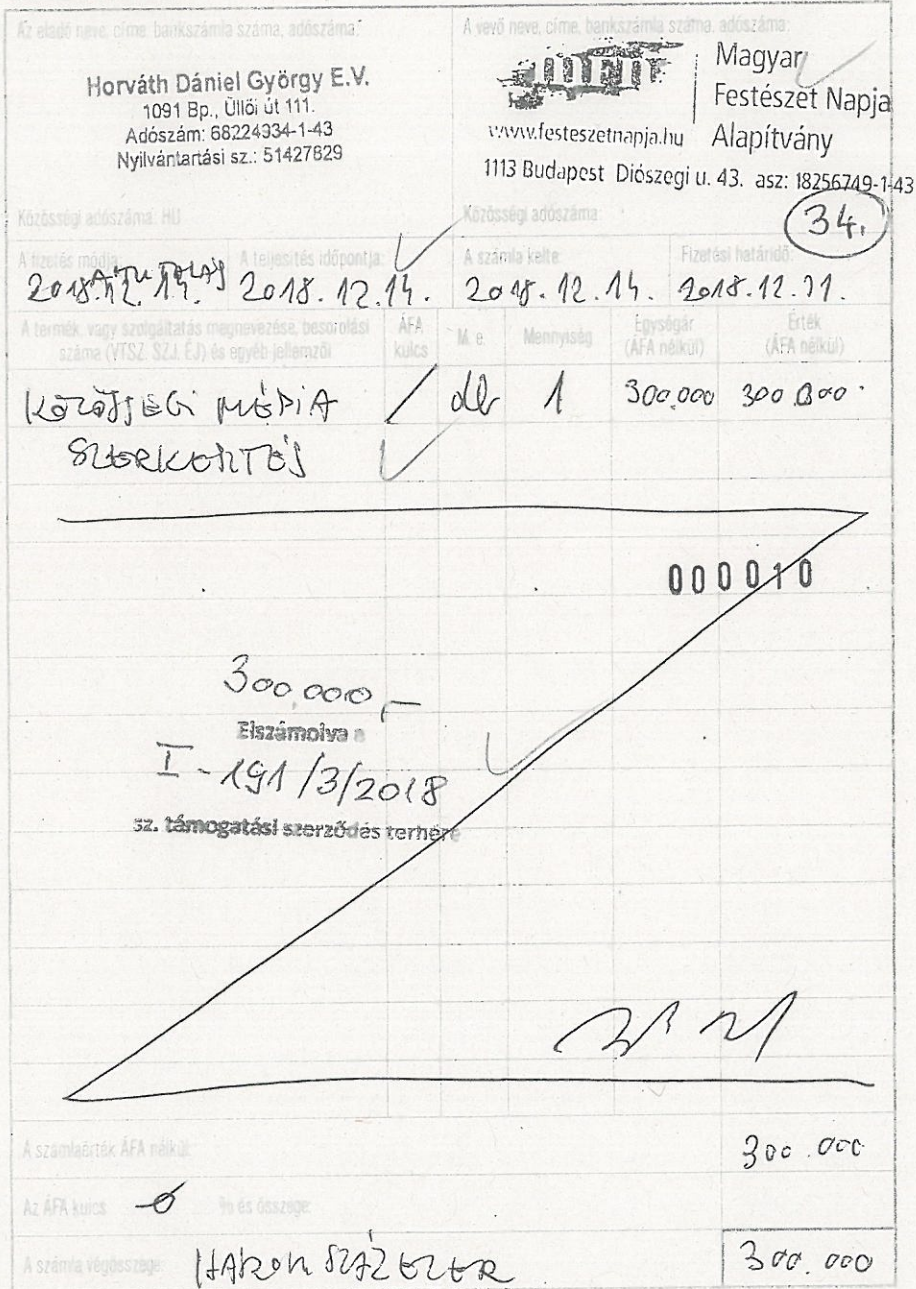 Az eladó neve, címe, bankszámla száma, adószáma:
Horváth Dániel György E.V.
1091 Bp., Üllői út 111.
Adószám: 68224934-1-43
Nyilvántartási sz.: 51427829
Közösségi adószáma: HU
A vevő neve, címe, bankszámla száma, adószáma:
Magyar
Festészet Napja
www.festeszetnapja.hu Alapítvány
1113 Budapest Diószegi u. 43. asz: 18256749-1-43
Közösségi adószáma:
34.
A fizetés módja: A teljesítés időpontja: A számla kelte: Fizetési határidő:
ÁTUTALÁS
2018.12.14. 2018.12.14. 2018.12.14. 2018.12.31.
A termék, vagy szolgáltatás megnevezése, besorolási száma (VTSZ, SZJ, ÉJ) és egyéb jellemzői
ÁFA kulcs
M. e.
Mennyiség
Egységár (ÁFA nélkül)
Érték (ÁFA nélkül)
KÖZÖSSÉGI MÉDIA / db 1 300.000 300.000
SZERKESZTÉS
000010
300.000,-
Elszámolva a
I-191/3/2018
sz. támogatási szerződés terhére
A számlaérték ÁFA nélkül: 300.000
Az ÁFA kulcs % és összege:
A számla végösszege: HÁROMSZÁZEZER 300.000